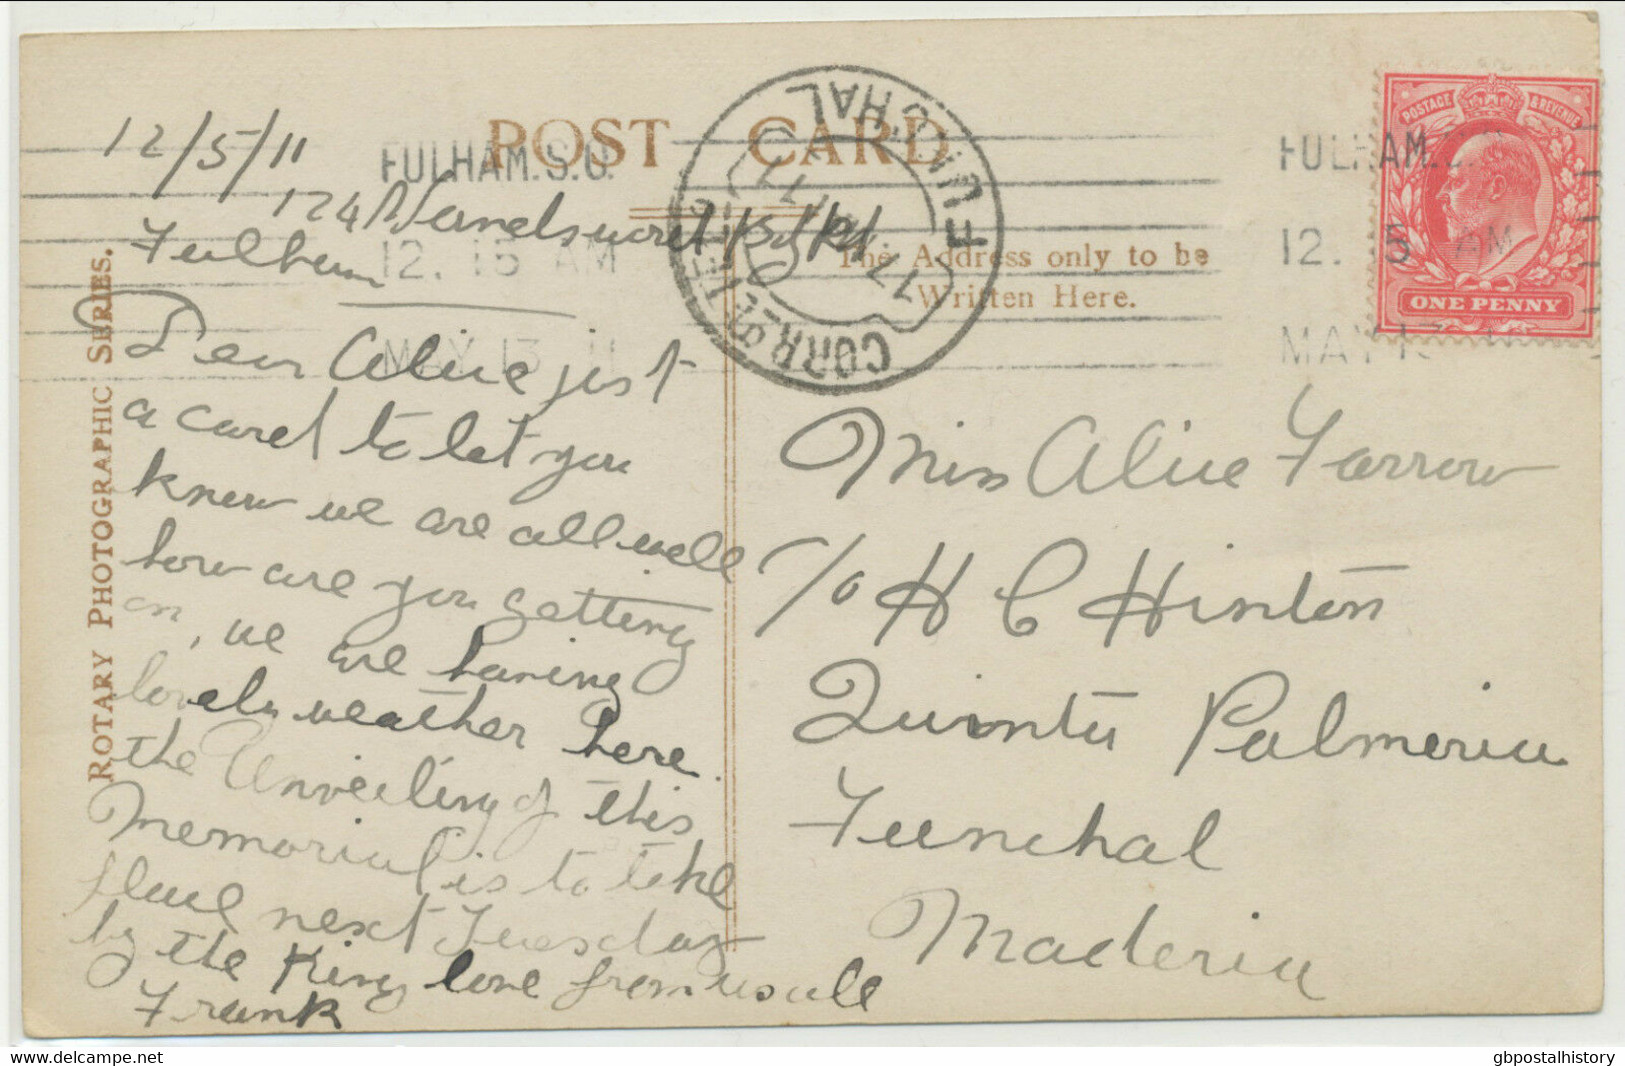 POST CARD
The Address only to be
Written Here.
ROTARY PHOTOGRAPHIC SERIES.
12/5/11
124 Wandsworth Bd Rd
Fulham
Dear Alice just
a card to let you
know we are all well
how are you getting
on, we are having
lovely weather here.
the Unveiling of this
Memorial is to take
place next Tuesday
by the King love from us all
Frank
Miss Alice Farrow
c/o H C Hinton
Quinta Palmeria
Funchal
Maderia
FULHAM.S.O.
12.15 AM
MAY 13 11
FUNCHAL
17 11
FULHAM.S.
12. 5 AM
MAY 13
POSTAGE & REVENUE
ONE PENNY
delcampe.net
gbpostalhistory